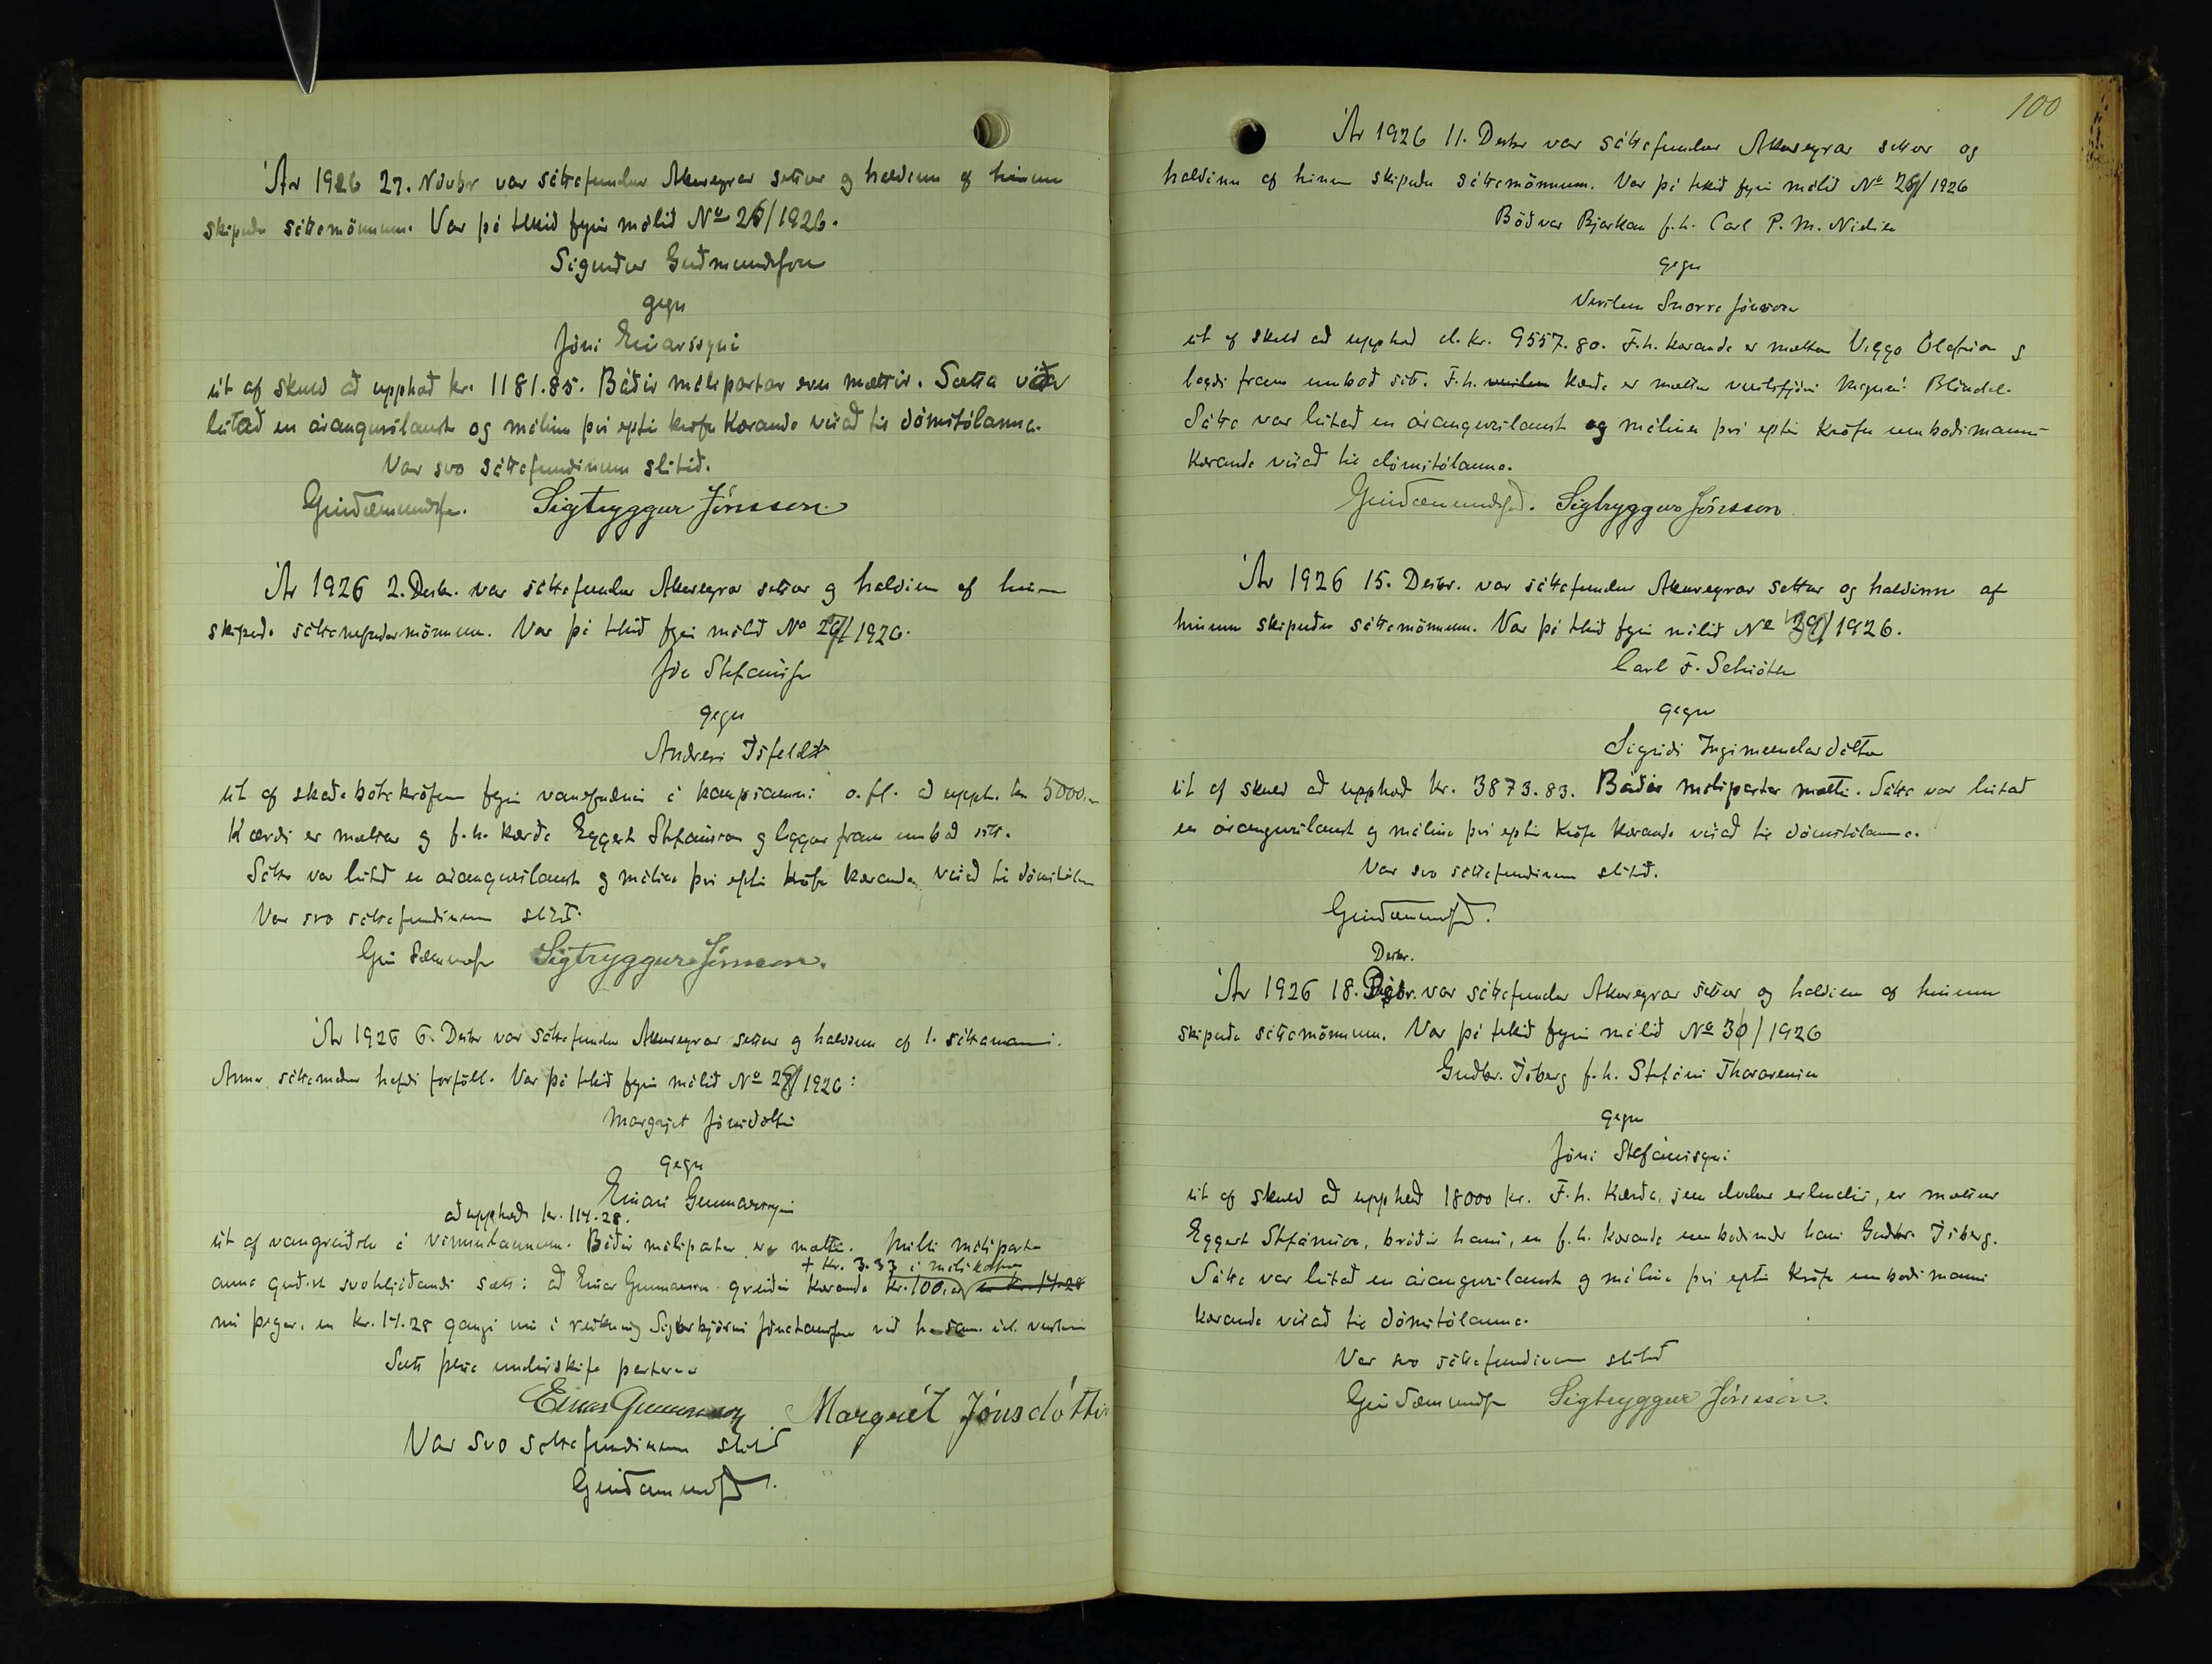 Ár 1926 27. Nóvbr var sáttafundur Akureyrar settur og haldinn af hinum
skipuðu sáttamönnum. Var þá tekið fyrir málið No 26/1926.
Sigurður Guðmundsson
gegn
Jóni Einarssyni
út af skuld að upphæð kr. 1181.85. Báðir málspartar eru mættir. Sátta var
leitað en árangurslaust og málinu því eptir kröfu kæranda vísað til dómstólanna.
Var svo sáttafundinum slitið.
Sigtryggur Jónsson.
Ár 1926 2. Desbr. var sáttafundur Akureyrar settur og haldinn af hinum
skipuðu sáttanefndarmönnum. Var þá tekið fyrir málið No 27/1926.
Jón Stefánsson
gegn
Andresi Ísfeld
út af skaðabótakröfum fyrir vanefndum á kaupsamni o.fl. að upph. kr 5000,-
Kærði er mættur og f.h. kærða Eggert Stefánsson og leggur fram umboð sitt.
Sátta var leitað en árangurslaust og málinu því eptir kröfu kæranda vísað til dómstólanna
Var svo sáttafundinum slitið.
Sigtryggur Jónsson.
Ár 1926 6. Desbr var sáttafundur Akureyrar settur og haldinn af 1. sáttamanni.
Annar sáttamaður hafði forföll. Var þá tekið fyrir málið No 28/1926:
Margrjet Jónsdóttir
gegn
Einari Gunnarssyni
að upphæð kr. 114.28.
út af vangreiðslu á vinnulaunum. Báðir málspartar eru mættir. Milli málsparta
+ kr. 3.33 í málskostn
anna gerðist svohljóðandi sátt: að Einar Gunnarsson greiðir kæranda kr. 100,00 en kr. 14.28
nú þegar, en kr. 14.28 gangi inn í reikning Sigurbjörns Jónatanssonar við
Sátt þessa undirskrifa partarnir
Einar Gunnarsson Margrét Jónsdóttir
Var svo sáttafundinum slitið
100
Ár 1926 11. Desbr var sáttafundur Akureyrar settur og
haldinn af hinum skipuðu sáttamönnum. Var þá tekið fyrir málið No 29/1926
Böðvar Bjarkan f.h. Carl P. M. Nielsen
gegn
Verslun Snorra Jónssonar
út af skuld að upphæð d. kr. 9557.80. F.h. kæranda er mættur Viggo Ólafsson og
lagði fram umboð sitt. F.h. verslun kærða er mættur verslstjóri Magnús Blöndal.
Sátta var leitað en árangurslaust og málinu því eptir kröfu umboðsmanns
kæranda vísað til dómstólanna.
Sigtryggur Jónsson
Ár 1926 15. Desbr. var sáttafundur Akureyrar settur og haldinn af
hinum skipuðu sáttamönnum. Var þá tekið fyrir málið No 30/1926.
Carl F. Schiöth
gegn
Sigríði Ingimundardóttur
út af skuld að upphæð kr. 3873.83. Báðir málspartar mættir. Sátta var leitað
en árangurslaust og málinu því eptir kröfu kæranda vísað til dómstólanna.
Var svo sáttafundinum slitið.
Desbr.
Ár 1926 18. Desbr. var sáttafundur Akureyrar settur og haldinn af hinum
skipuðu sáttamönnum. Var þá tekið fyrir málið No 31/1926
Guðbr. Ísberg f.h. Stefáni Thorarensen
gegn
Jóni Stefánssyni
út af skuld að upphæð 18000 kr. F.h. kærða, sem dvelur erlendis, er mættur
Eggert Stefánsson, bróðir hans, en f.h. kæranda umboðsmaður hans Guðbr. Ísberg.
Sátta var leitað en árangurslaust og málinu því eptir kröfu umboðsmanns
kæranda vísað til dómstólanna.
Var svo sáttafundinum slitið
Sigtryggur Jónsson.